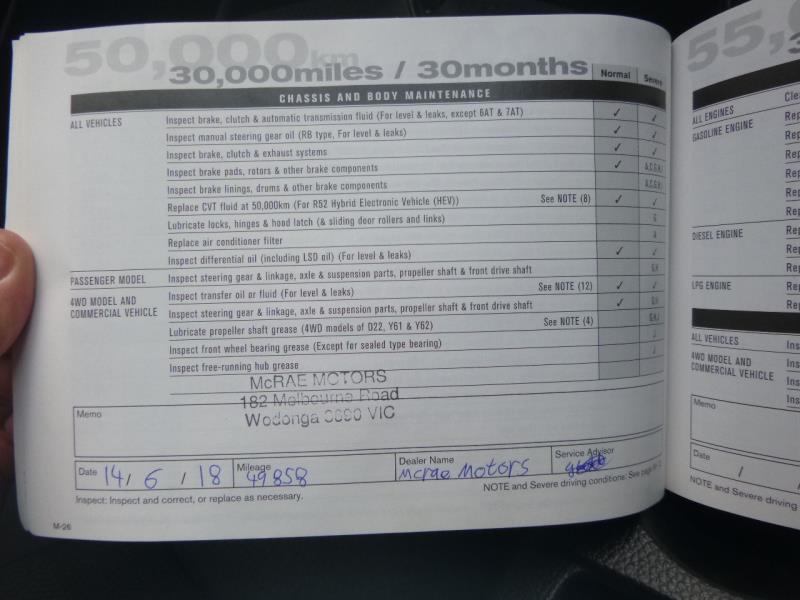 50,000km
30,000miles / 30months
Normal Severe
CHASSIS AND BODY MAINTENANCE
ALL VEHICLES
Inspect brake, clutch & automatic transmission fluid (For level & leaks, except 6AT & 7AT) ✓ ✓
Inspect manual steering gear oil (RB type, For level & leaks) ✓ ✓
Inspect brake, clutch & exhaust systems ✓ ✓
Inspect brake pads, rotors & other brake components ✓ A,C,G,H,I
Inspect brake linings, drums & other brake components A,C,G,H,I
Replace CVT fluid at 50,000km (For R52 Hybrid Electronic Vehicle (HEV)) See NOTE (8) ✓ ✓
Lubricate locks, hinges & hood latch (& sliding door rollers and links) G
Replace air conditioner filter A
Inspect differential oil (including LSD oil) (For level & leaks) ✓ ✓
PASSENGER MODEL
Inspect steering gear & linkage, axle & suspension parts, propeller shaft & front drive shaft G,H
4WD MODEL AND
COMMERCIAL VEHICLE
Inspect transfer oil or fluid (For level & leaks) See NOTE (12) ✓ ✓
Inspect steering gear & linkage, axle & suspension parts, propeller shaft & front drive shaft ✓ G,H
Lubricate propeller shaft grease (4WD models of D22, Y61 & Y62) See NOTE (4) G,H,J
Inspect front wheel bearing grease (Except for sealed type bearing) J
Inspect free-running hub grease J
McRAE MOTORS
182 Melbourne Road
Wodonga 3690 VIC
Memo
Date 14/ 6 / 18
Mileage
49858
Dealer Name
Mcrae Motors
Service Advisor
Inspect: Inspect and correct, or replace as necessary.
NOTE and Severe driving conditions: See page
M-26
55,
ALL ENGINES
GASOLINE ENGINE
Cle
Rep
Rep
Rep
Rep
Rep
Rep
DIESEL ENGINE
Rep
Rep
LPG ENGINE
Rep
Rep
ALL VEHICLES
Ins
4WD MODEL AND
COMMERCIAL VEHICLE
Ins
Ins
Ins
Memo
Date / /
NOTE and Severe driving